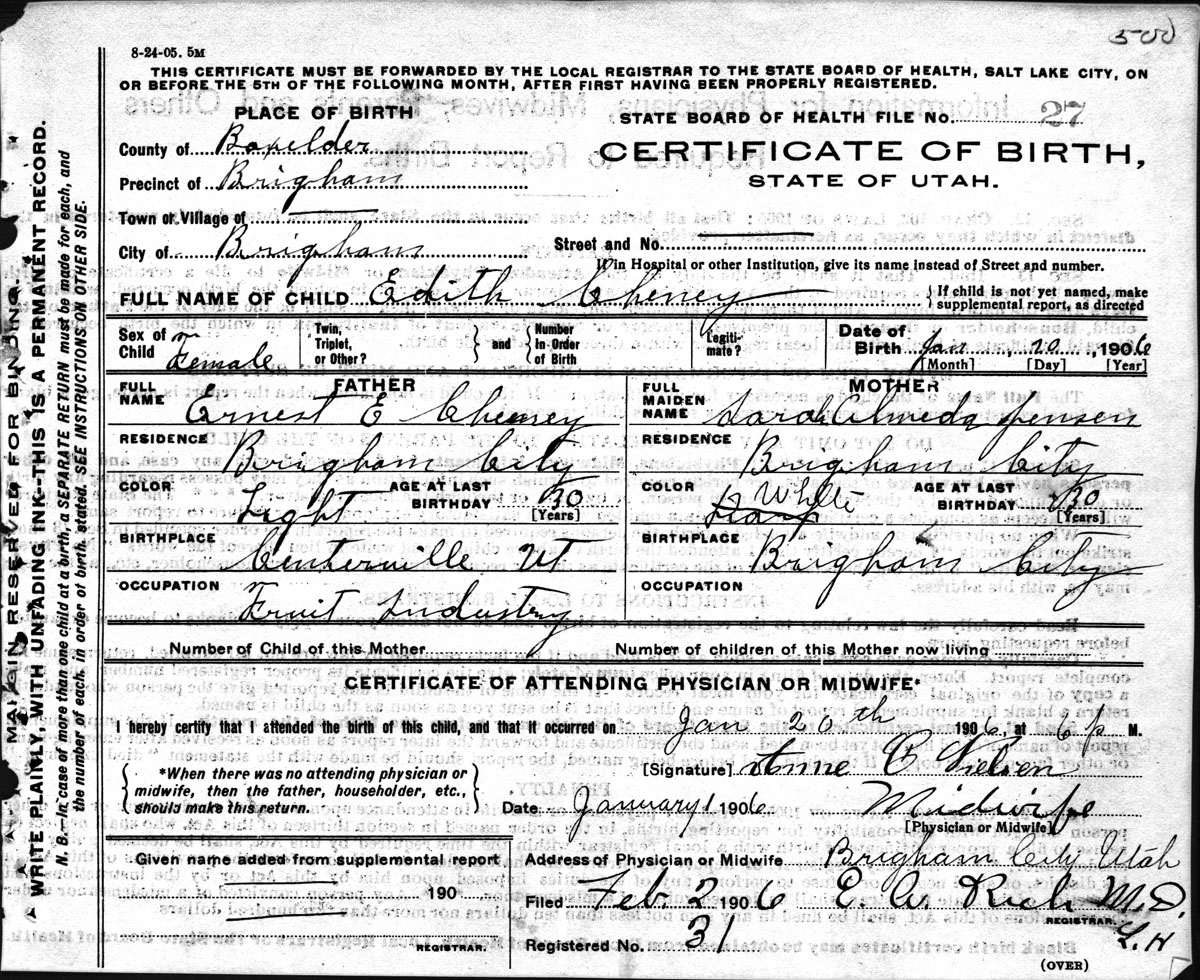 500
8-24-05. 5M
THIS CERTIFICATE MUST BE FORWARDED BY THE LOCAL REGISTRAR TO THE STATE BOARD OF HEALTH, SALT LAKE CITY, ON
OR BEFORE THE 5TH OF THE FOLLOWING MONTH, AFTER FIRST HAVING BEEN PROPERLY REGISTERED.
PLACE OF BIRTH
STATE BOARD OF HEALTH FILE No. 27
County of Boxelder
CERTIFICATE OF BIRTH,
Precinct of Brigham
STATE OF UTAH.
Town or Village of
City of Brigham
Street and No.
If in Hospital or other Institution, give its name instead of Street and number.
FULL NAME OF CHILD Edith Cheney
If child is not yet named, make supplemental report, as directed
Sex of Child Female
Twin, Triplet, or Other?
and
Number In Order of Birth
Legitimate?
Date of Birth Jan 20, 1906
[Month] [Day] [Year]
FATHER
FULL NAME Ernest E Cheeney
RESIDENCE Brigham City
COLOR Light
AGE AT LAST BIRTHDAY 30
[Years]
BIRTHPLACE Centerville Ut
OCCUPATION Fruit Industry
MOTHER
FULL MAIDEN NAME Sarah Almeda Jensen
RESIDENCE Brigham City
COLOR White
AGE AT LAST BIRTHDAY 30
[Years]
BIRTHPLACE Brigham City
OCCUPATION
Number of Child of this Mother
Number of children of this Mother now living
CERTIFICATE OF ATTENDING PHYSICIAN OR MIDWIFE*
I hereby certify that I attended the birth of this child, and that it occurred on Jan 20th 1906, at 6 p M.
*When there was no attending physician or
midwife, then the father, householder, etc.,
should make this return.
[Signature] Anne C Nielsen
Date January 1 1906 Midwife
[Physician or Midwife]
Given name added from supplemental report
190
REGISTRAR.
Address of Physician or Midwife Brigham City Utah
Filed Feb 2 1906 E. W. Rich M.D.
REGISTRAR.
L. H
Registered No. 31
(OVER)
MARGIN RESERVED FOR BINDING.
WRITE PLAINLY, WITH UNFADING INK--THIS IS A PERMANENT RECORD.
N. B.—In case of more than one child at a birth, a SEPARATE RETURN must be made for each, and
the number of each, in order of birth, stated. SEE INSTRUCTIONS ON OTHER SIDE.